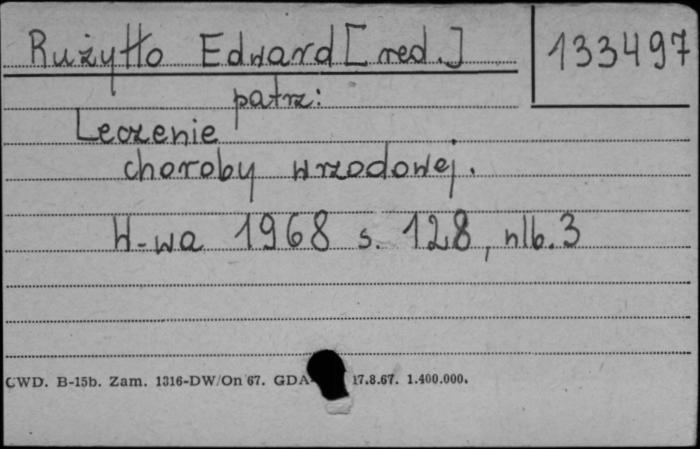 Rużyłło Edward [red.] 133497
patrz:
Leczenie
choroby wrzodowej.
W-wa 1968 s. 128, nlb. 3
CWD. B-15b. Zam. 1316-DW/On 67. GDA- 17.8.67. 1.400.000.